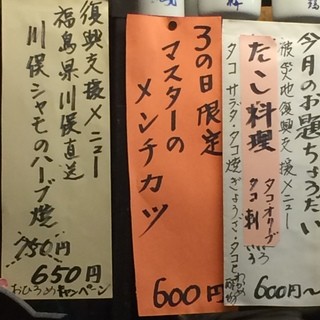 今月のお題ちょうだい
被災地復興支援メニュー
たこ料理
タコオリーブ
タコ刺
タコサラダ・タコ焼ぎょうざ・タコと
600円〜
3の日限定
・マスターの
メンチカツ
600円
復興支援メニュー
福島県川俣直送
川俣シャモのハーブ焼
750円
650円
おひろめキャンペーン